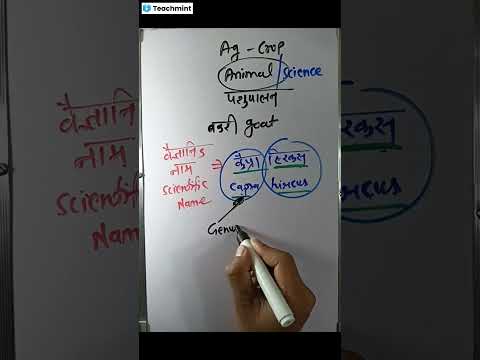 Teachmint
Ag - Crop
Animal / Science
पशुपालन
बकरी goat
वैज्ञानिक
नाम
Scientific
Name
वैज्ञानिक
नाम
Scientific
Name
⇒
कैप्रा हिरकस
capra hircus
Genus
रकस
hircus